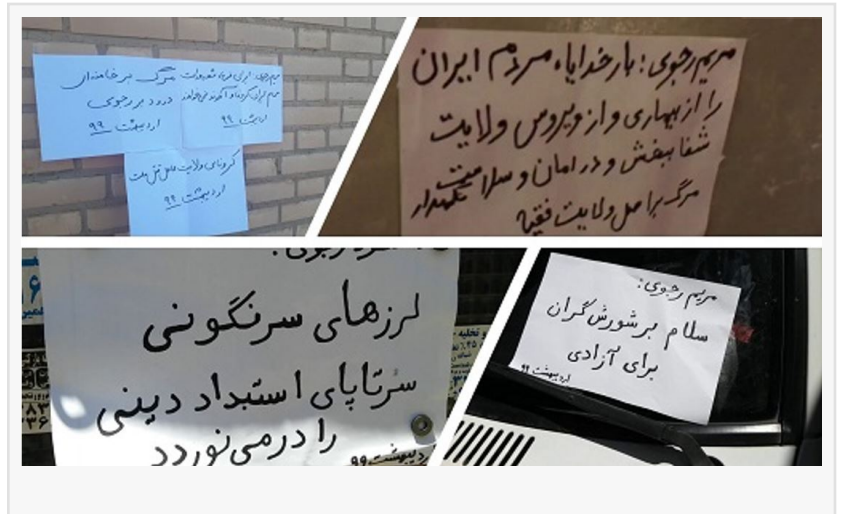 مرگ بر خامنه‌ای
درود بر رجوی
اردیبهشت ۹۹
مریم رجوی: ایران
اردیبهشت ۹۹
کرونای ولایت عامل قتل ملت
اردیبهشت ۹۹
مریم رجوی: بار خدایا، مردم ایران
را از بیماری و از ویروس ولایت
شفا ببخش و در امان و سلامت نگهدار
مرگ بر اصل ولایت فقیه
رجوی:
لرزه‌های سرنگونی
سرتاپای استبداد دینی
را درمی‌نوردد
اردیبهشت ۹۹
مریم رجوی:
سلام بر شورش‌گران
برای آزادی
اردیبهشت ۹۹